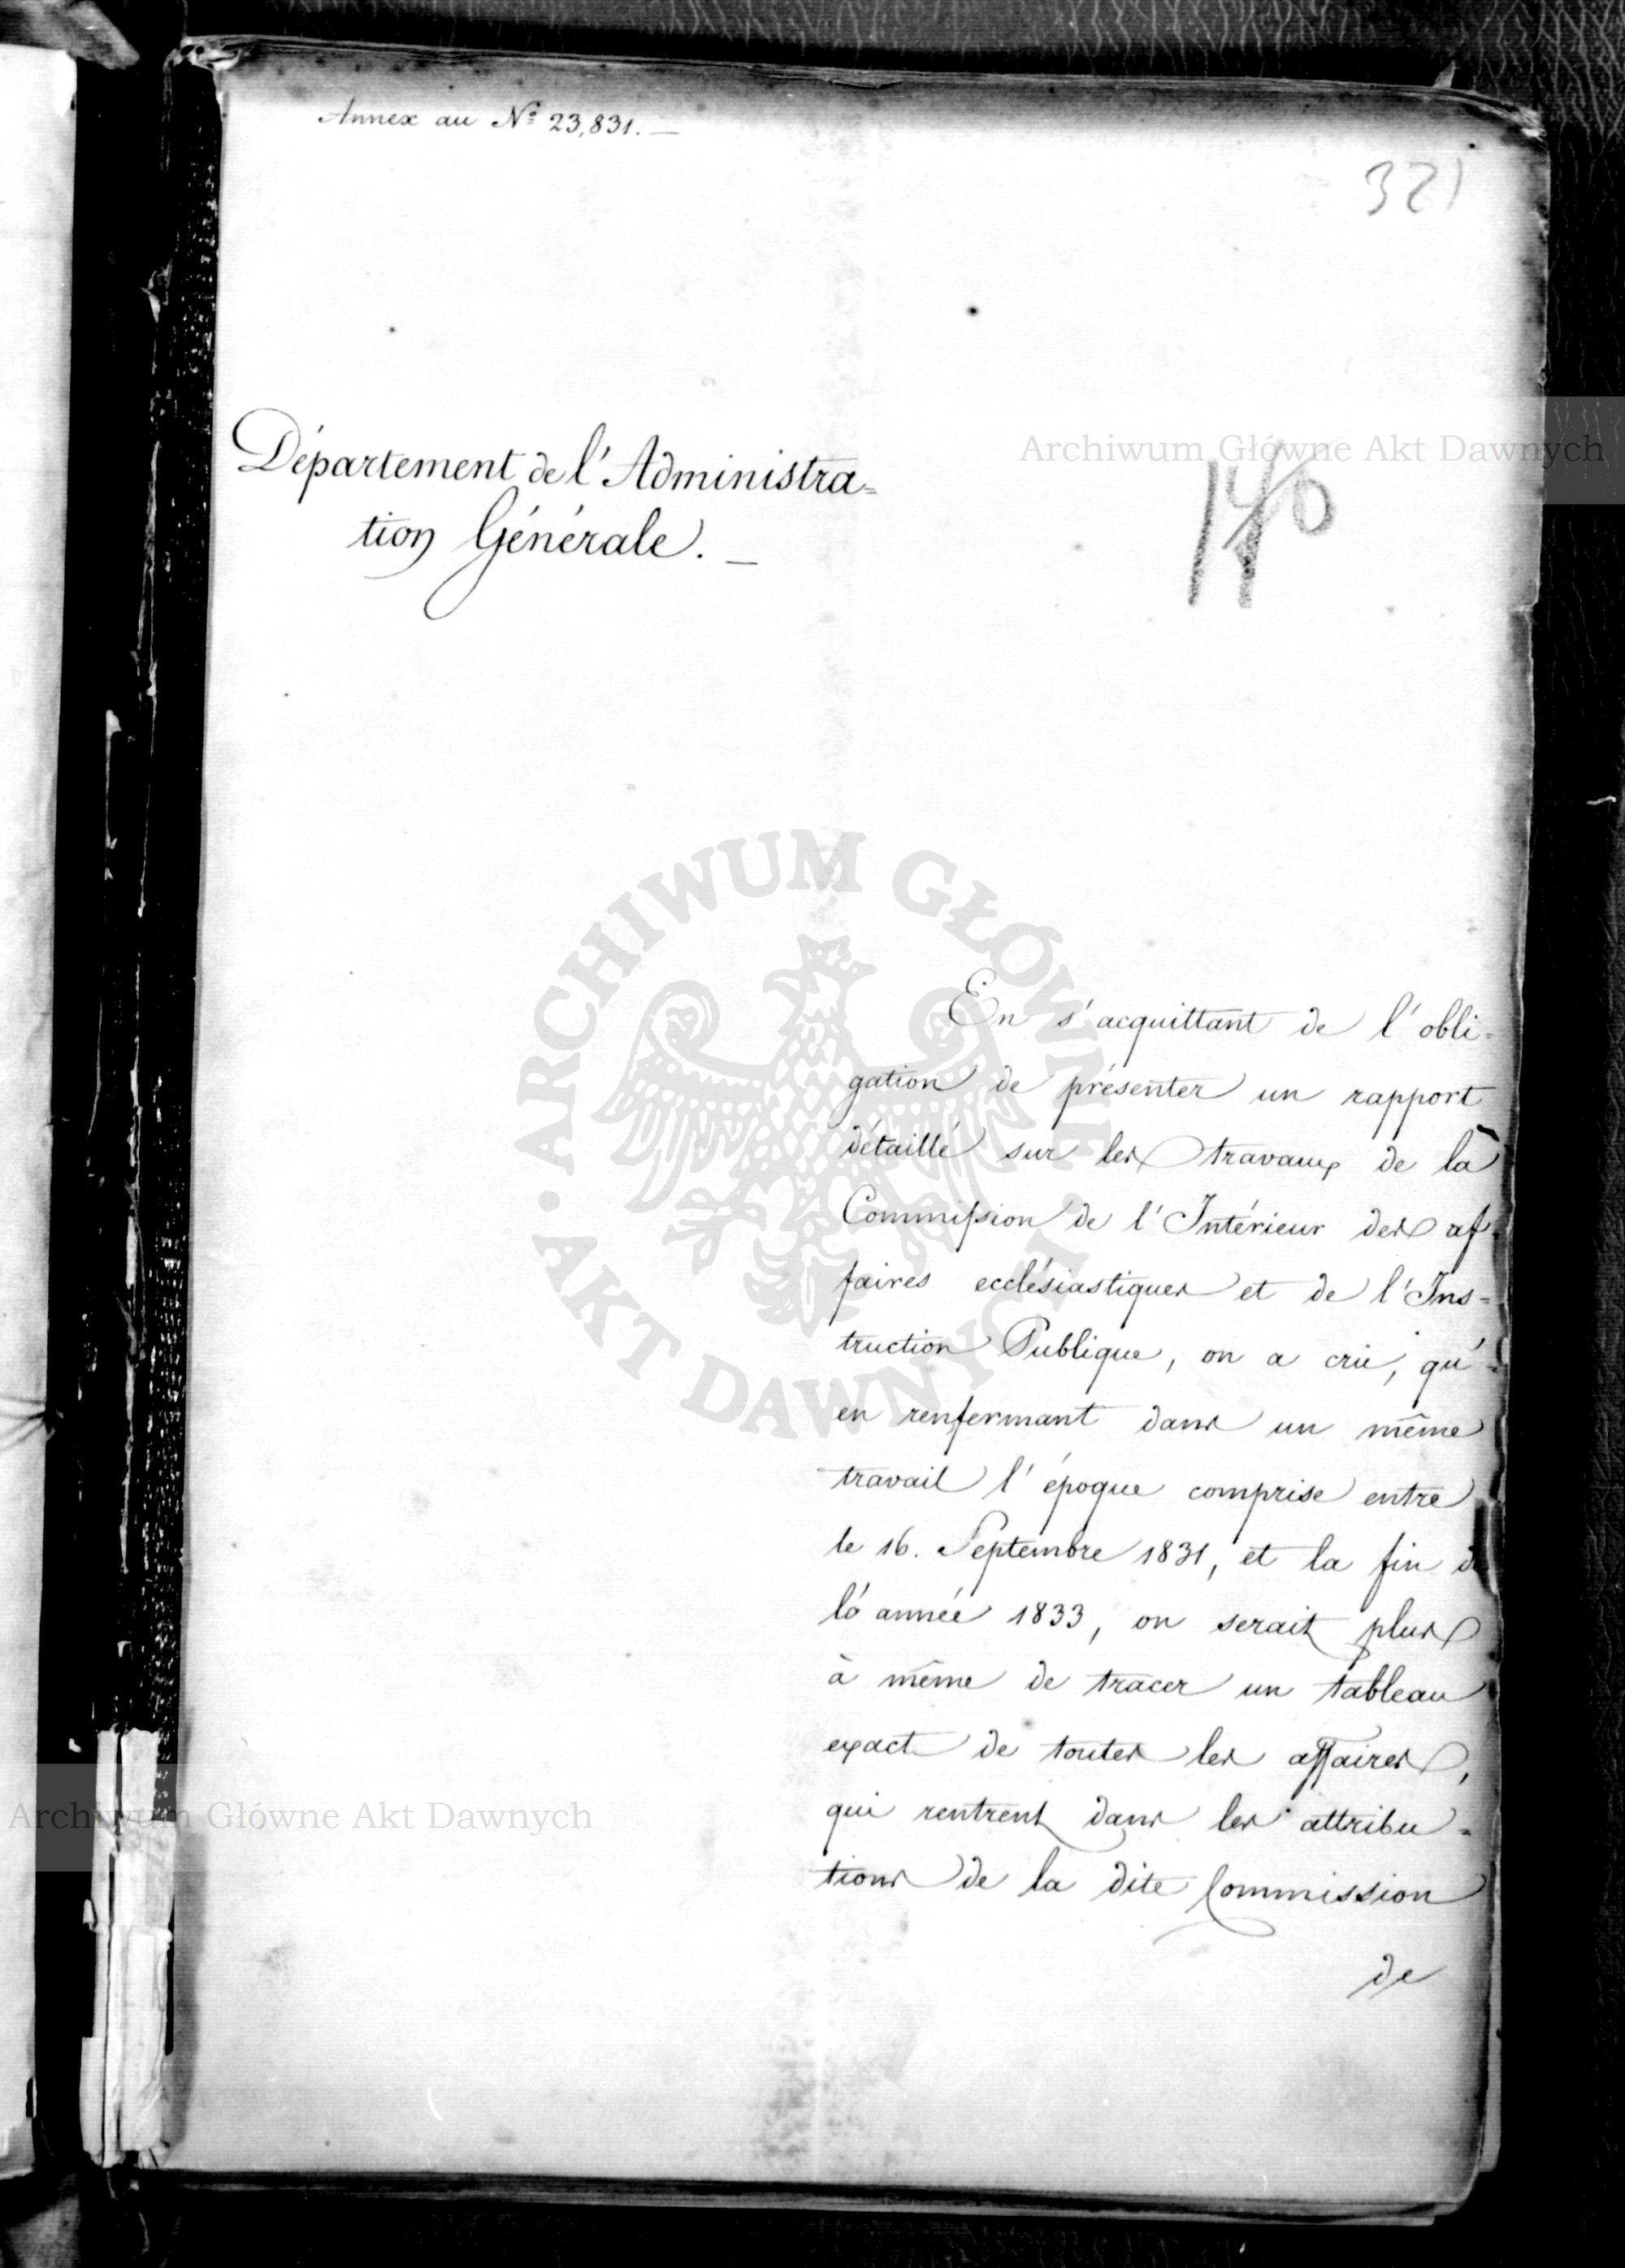 Annex au Nº 23,831. —
321
Département de l'Administra=
tion Générale. —
Archiwum Główne Akt Dawnych
ARCHIWUM GŁÓWNE
AKT DAWNYCH
En s'acquittant de l'obli=
gation de présenter un rapport
détaillé sur les travaux de la
Commission de l'Intérieur des af=
faires ecclésiastiques et de l'Ins=
truction Publique, on a crû, qu'=
en renfermant dans un même
travail l'époque comprise entre
le 16. Septembre 1831, et la fin de
l'année 1833, on serait plus
à même de tracer un tableau
exact de toutes les affaires,
qui rentrent dans les attribu=
tions de la dite Commission
Archiwum Główne Akt Dawnych
de